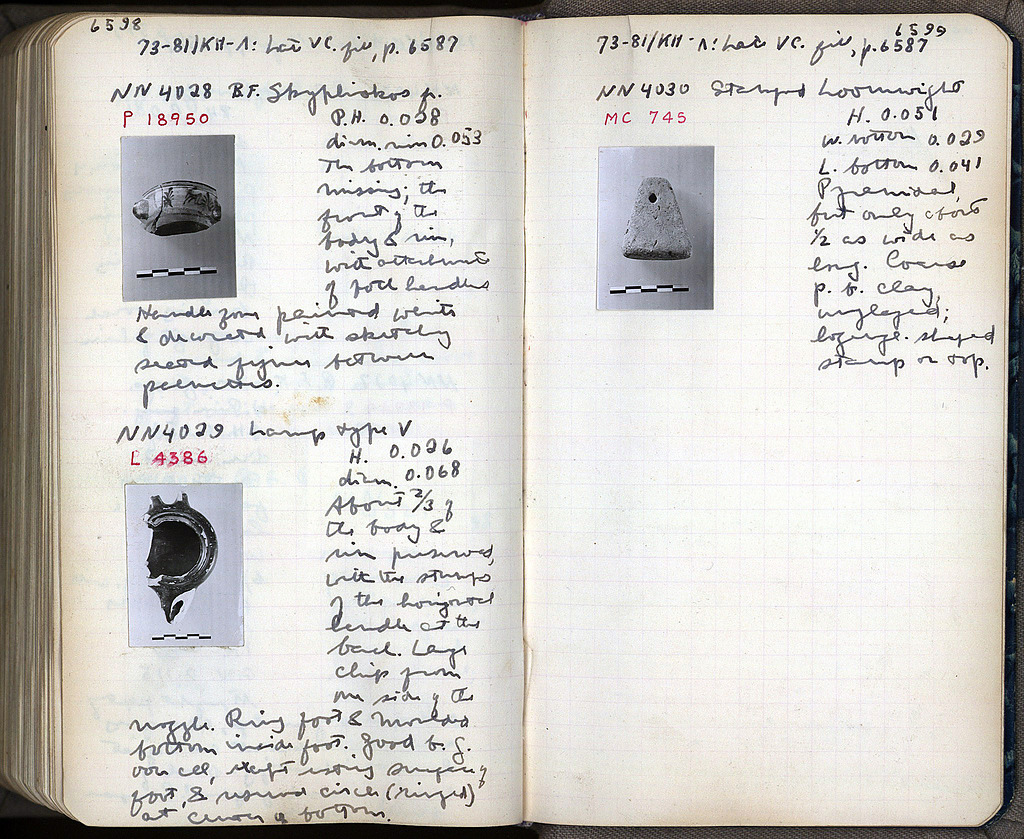 6598
73-81/KH-Λ: Late VC. fill, p. 6587
NN 4028 B.F. Skyphiskos fr.
P 18950
P.H. 0.028
diam. rim 0.053
The bottom
missing; the
front of the
body & rim,
with attachments
of both handles
Handle zone painted white
& decorated with sketchy
seated figures between
palmettes.
NN4029 Lamp type V
L 4386
H. 0.026
diam. 0.068
About 2/3 of
the body &
rim preserved,
with the stumps
of the horizontal
handle at the
back. Large
chip from
one side of the
nozzle. Ring foot & moulded
bottom inside foot. Good b. g.
over all, except resting surface of
foot, & reserved circle (ringed)
at center of bottom.
6599
73-81/KH-Λ: Late VC. fill, p. 6587
NN 4030 Stamped Loomweight
MC 745
H. 0.051
W. bottom 0.029
L. bottom 0.041
Pyramidal,
but only about
1/2 as wide as
long. Coarse
p. b. clay,
unglazed;
lozenge-shaped
stamp on top.